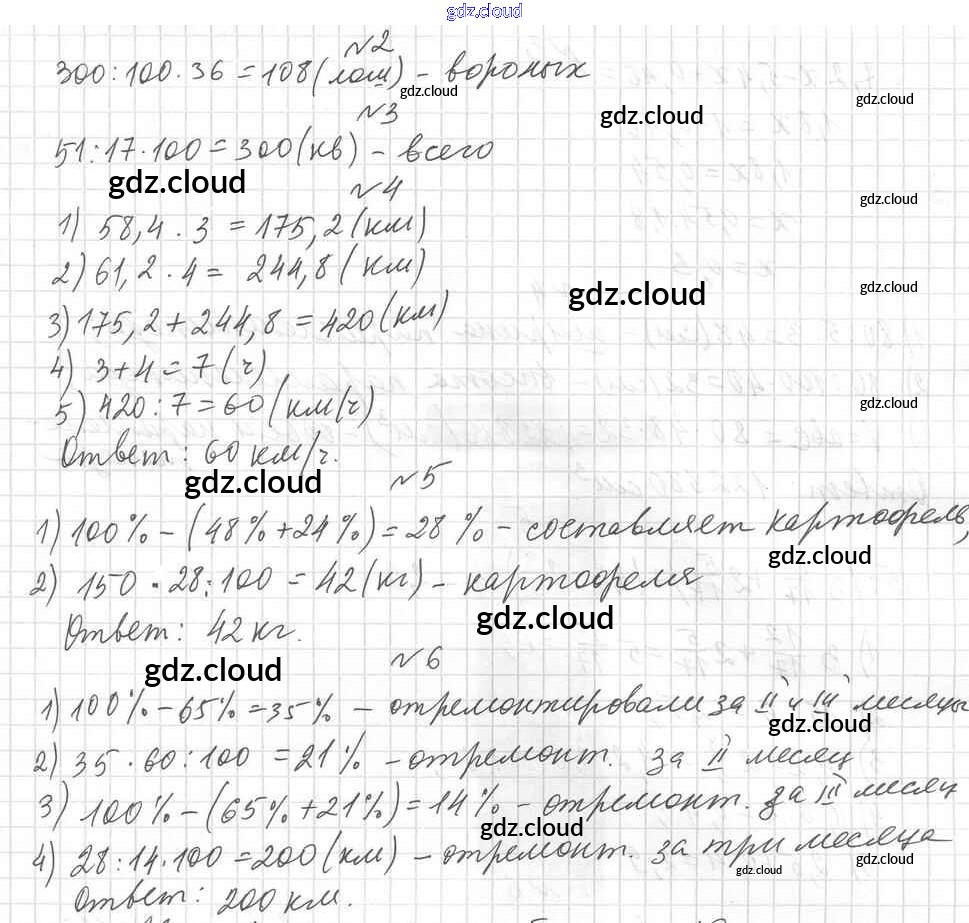 gdz.cloud
№2
300:100·36=108(лош) - вороных
gdz.cloud
gdz.cloud
gdz.cloud
№3
51:17·100=300(кв) - всего
gdz.cloud
№4
gdz.cloud
1) 58,4·3=175,2(км)
2) 61,2·4= 244,8(км)
gdz.cloud
gdz.cloud
3) 175,2+244,8=420(км)
4) 3+4=7(ч)
5) 420:7=60(км/ч)
gdz.cloud
Ответ: 60 км/ч.
gdz.cloud
№5
1) 100%-(48%+24%)=28% - составляет картофель,
gdz.cloud
2) 150·28:100=42(кг) - картофеля
gdz.cloud
Ответ: 42 кг.
gdz.cloud
№6
1) 100%-65%=35% - отремонтировали за II и III месяцы
gdz.cloud
2) 35·60:100=21% - отремонт. за II месяц
3) 100%-(65%+21%)=14% - отремонт. за III месяц
gdz.cloud
4) 28:14·100=200(км) - отремонт. за три месяца
gdz.cloud
gdz.cloud
Ответ: 200 км.